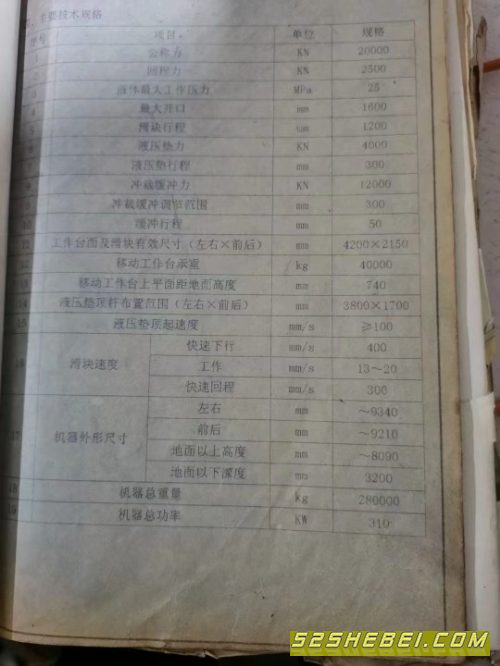 主要技术规格
序号 项目 单位 规格
1 公称力 KN 20000
2 回程力 KN 2500
3 液体最大工作压力 MPa 25
4 最大开口 mm 1600
5 滑块行程 mm 1200
液压垫力 KN 4000
液压垫行程 mm 300
冲裁缓冲力 KN 12000
冲裁缓冲调节范围 mm 300
10 缓冲行程 mm 50
11 工作台面及滑块有效尺寸（左右×前后） mm 4200×2150
移动工作台承重 kg 40000
移动工作台上平面距地面高度 mm 740
液压垫顶杆布置范围（左右×前后） mm 3800×1700
15 液压垫顶起速度 mm/s ≥100
16 滑块速度 快速下行 mm/s 400
工作 mm/s 13~20
快速回程 mm/s 300
17 机器外形尺寸 左右 mm ~9340
前后 mm ~9210
地面以上高度 mm ~8090
地面以下深度 mm 3200
18 机器总重量 kg 280000
19 机器总功率 KW 310
52SHEBEI.COM